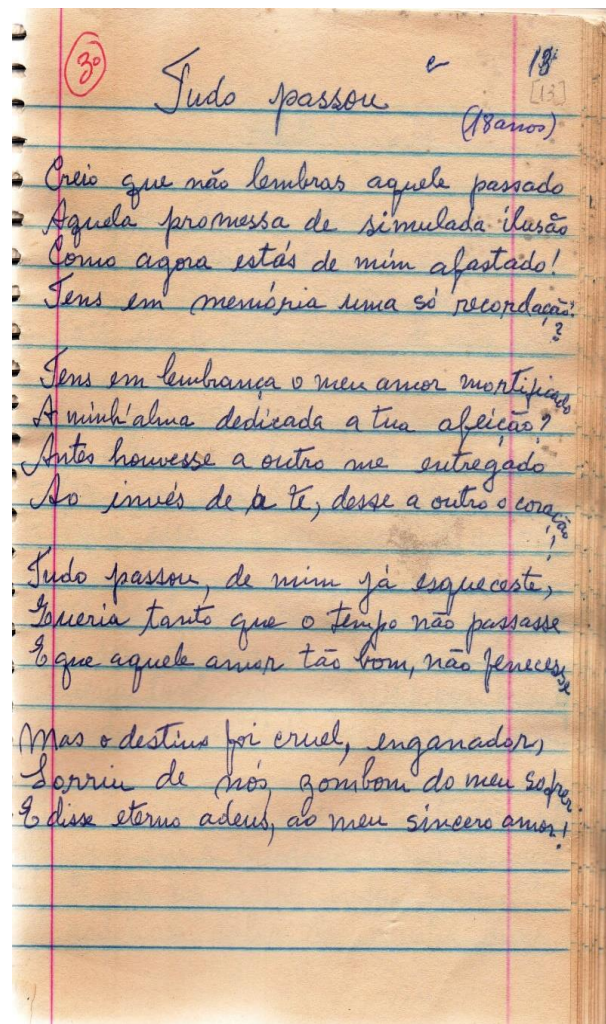 3º
13
[13]
Tudo passou
(18 anos)
Creio que não lembras aquele passado
Aquela promessa de simulada ilusão
Como agora estás de mim afastado!
Tens em memória uma só recordação?
Tens em lembrança o meu amor mortificado
A minh'alma dedicada a tua afeição?
Antes houvesse a outro me entregado
Ao invés de a te, desse a outro o coração!
Tudo passou, de mim já esqueceste,
Queria tanto que o tempo não passasse
E que aquele amor tão bom, não fenecesse
Mas o destino foi cruel, enganador,
Sorriu de nós, zombou do meu sofrer
E disse eterno adeus, ao meu sincero amor!